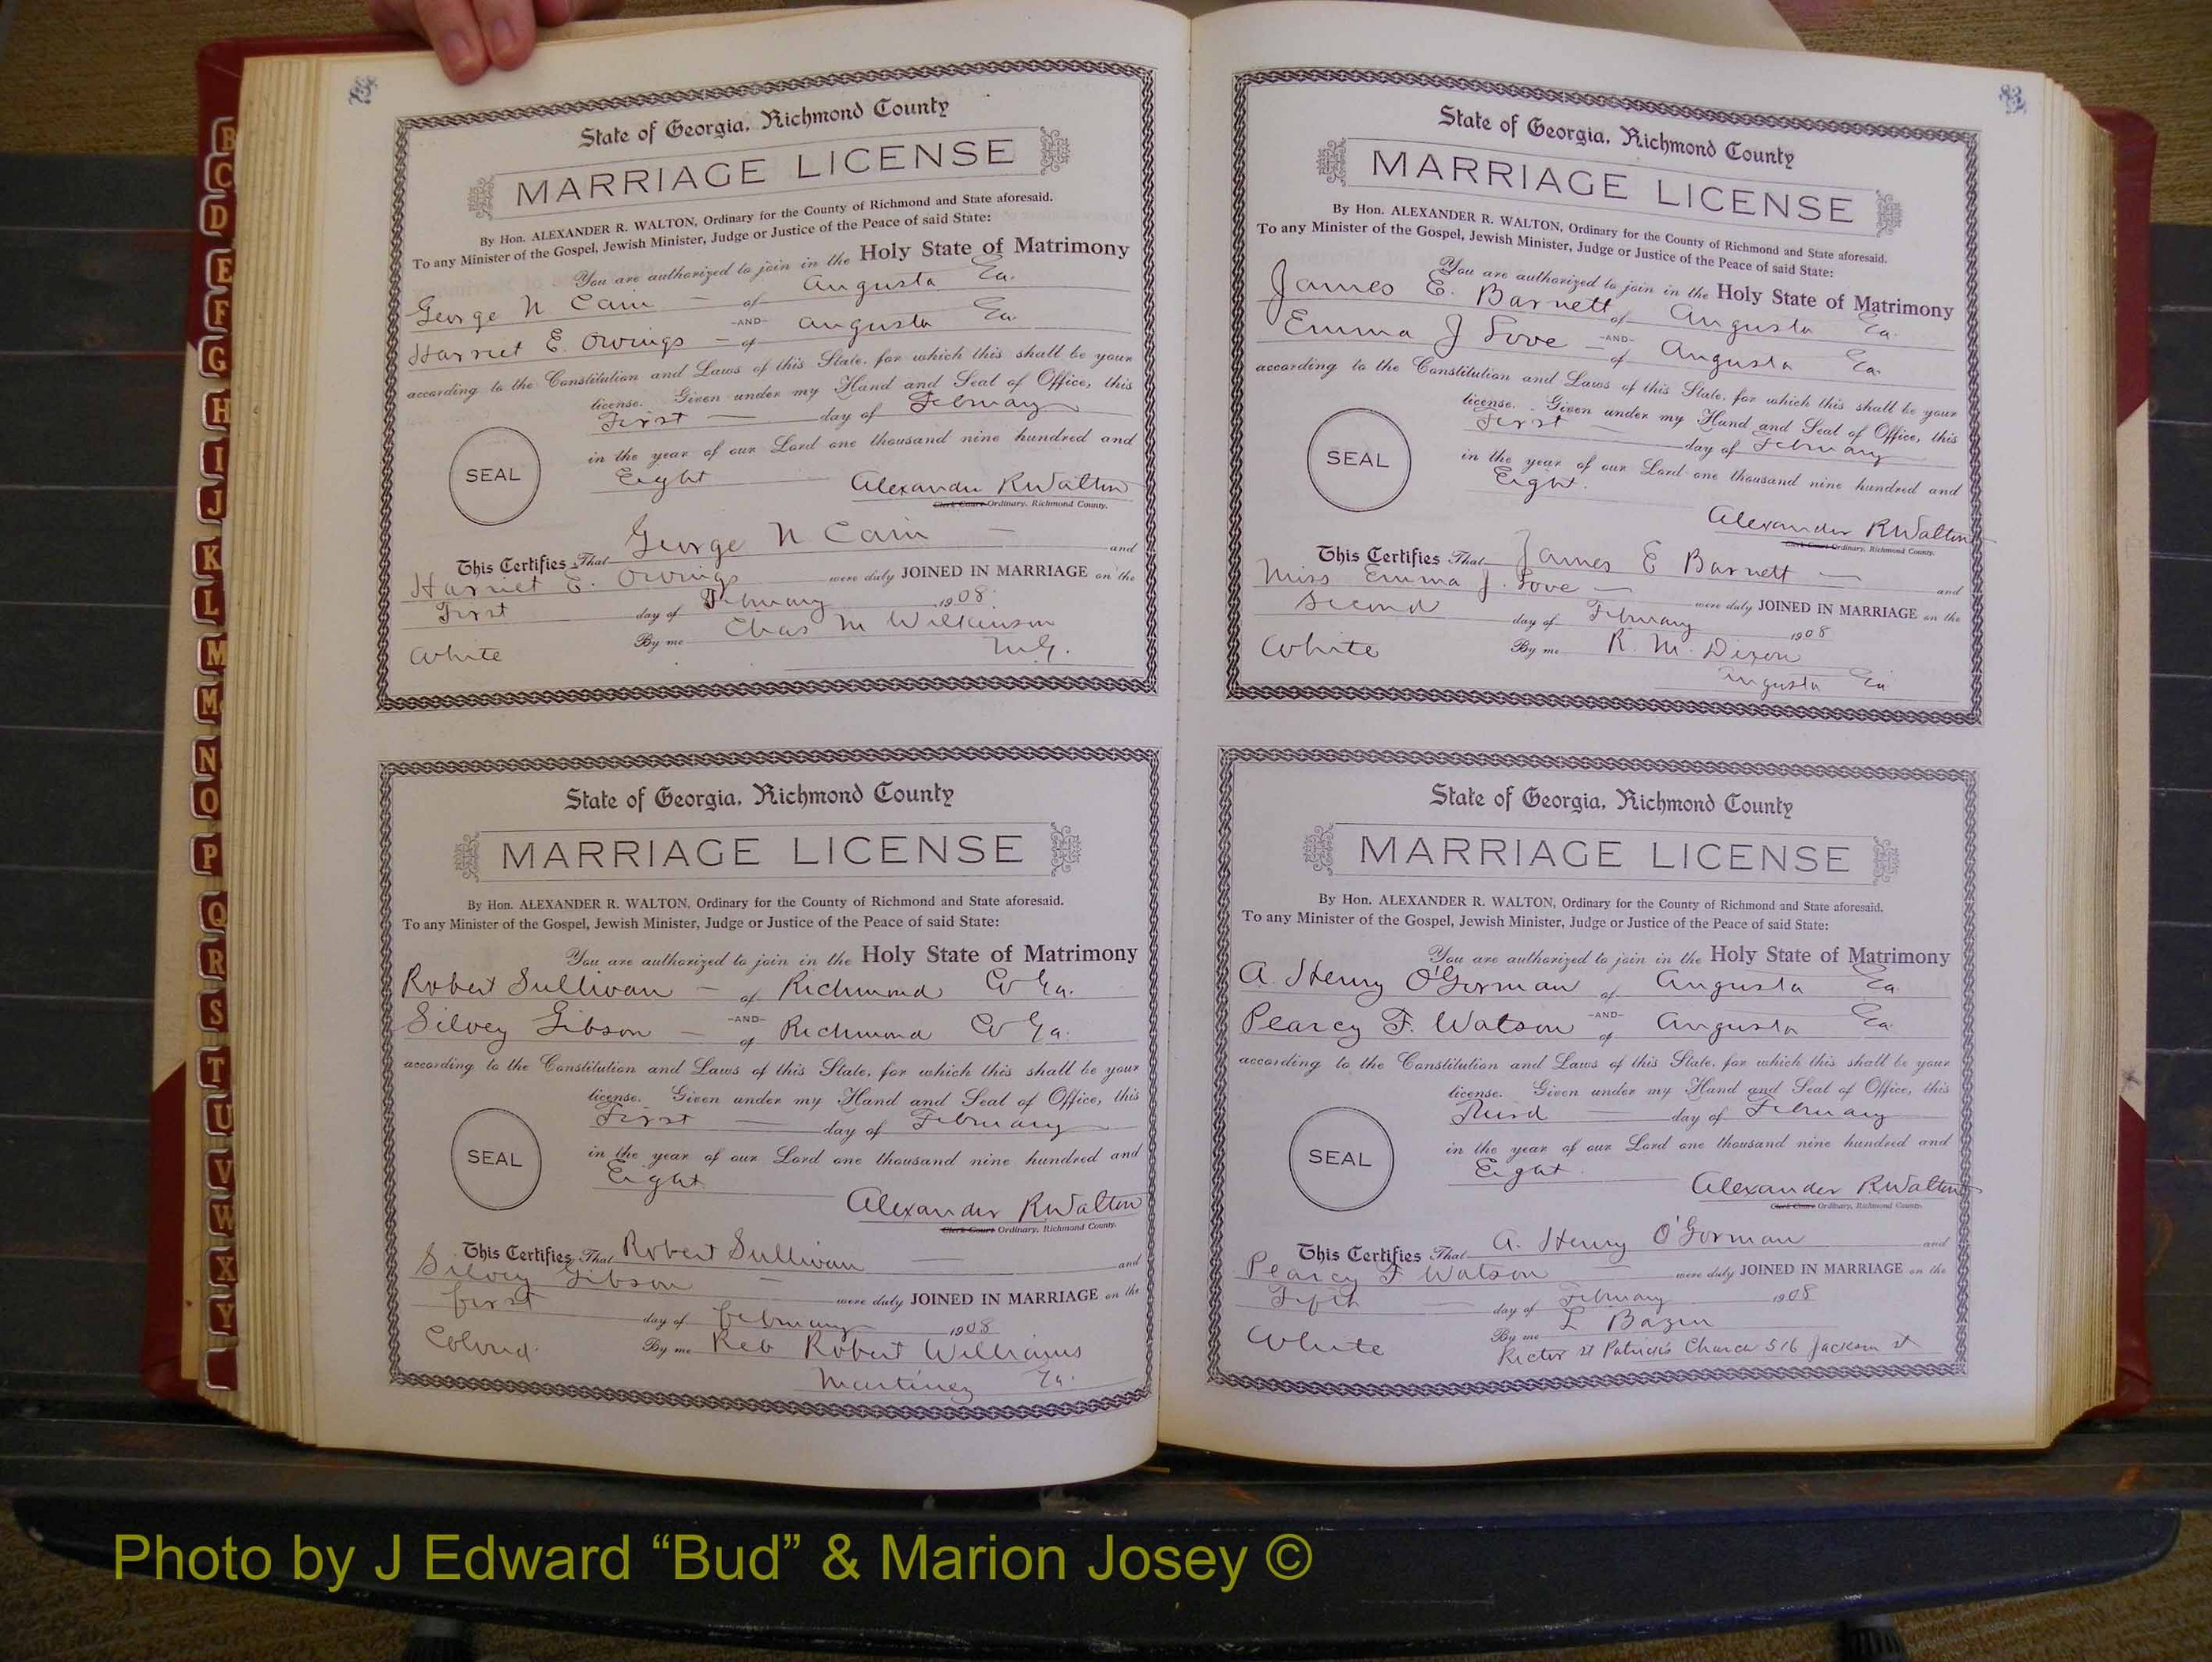 B
C
D
E
F
G
H
I
J
K
L
M
Mc
N
O
P
Q
R
S
T
U
V
W
X
Y
State of Georgia, Richmond County
MARRIAGE LICENSE
By Hon. ALEXANDER R. WALTON, Ordinary for the County of Richmond and State aforesaid.
To any Minister of the Gospel, Jewish Minister, Judge or Justice of the Peace of said State:
You are authorized to join in the Holy State of Matrimony
George N Cain - of Augusta Ga.
-AND-
Harriet E. Owings - of Augusta Ga.
according to the Constitution and Laws of this State, for which this shall be your
license. Given under my Hand and Seal of Office, this
First day of February
in the year of our Lord one thousand nine hundred and
SEAL
Eight
Alexander R Walton
Clerk Court Ordinary, Richmond County.
This Certifies That George N Cain and
Harriet E. Owings were duly JOINED IN MARRIAGE on the
First day of February 1908.
White By me Chas M Wilkinson
M.G.
State of Georgia, Richmond County
MARRIAGE LICENSE
By Hon. ALEXANDER R. WALTON, Ordinary for the County of Richmond and State aforesaid.
To any Minister of the Gospel, Jewish Minister, Judge or Justice of the Peace of said State:
You are authorized to join in the Holy State of Matrimony
Robert Sullivan - of Richmond Co Ga.
-AND-
Silvey Gibson - of Richmond Co Ga.
according to the Constitution and Laws of this State, for which this shall be your
license. Given under my Hand and Seal of Office, this
First day of February
in the year of our Lord one thousand nine hundred and
SEAL
Eight
Alexander R Walton
Clerk Court Ordinary, Richmond County.
This Certifies That Robert Sullivan and
Silvey Gibson were duly JOINED IN MARRIAGE on the
first day of February 1908
Colored By me Rev Robert Williams
Martinez Ga.
State of Georgia, Richmond County
MARRIAGE LICENSE
By Hon. ALEXANDER R. WALTON, Ordinary for the County of Richmond and State aforesaid.
To any Minister of the Gospel, Jewish Minister, Judge or Justice of the Peace of said State:
You are authorized to join in the Holy State of Matrimony
James E. Barnett of Augusta Ga.
-AND-
Emma J Love - of Augusta Ga.
according to the Constitution and Laws of this State, for which this shall be your
license. Given under my Hand and Seal of Office, this
First day of February
in the year of our Lord one thousand nine hundred and
SEAL
Eight.
Alexander R Walton
Clerk Court Ordinary, Richmond County.
This Certifies That James E Barnett and
Miss Emma J. Love were duly JOINED IN MARRIAGE on the
Second day of February 1908
White By me R. M. Dixon
Augusta Ga
State of Georgia, Richmond County
MARRIAGE LICENSE
By Hon. ALEXANDER R. WALTON, Ordinary for the County of Richmond and State aforesaid.
To any Minister of the Gospel, Jewish Minister, Judge or Justice of the Peace of said State:
You are authorized to join in the Holy State of Matrimony
A. Henry O'Gorman of Augusta Ga
-AND-
Pearcy F. Watson of Augusta Ga
according to the Constitution and Laws of this State, for which this shall be your
license. Given under my Hand and Seal of Office, this
Third day of February
in the year of our Lord one thousand nine hundred and
SEAL
Eight.
Alexander R. Walton
Clerk Court Ordinary, Richmond County.
This Certifies That A. Henry O'Gorman and
Pearcy F Watson were duly JOINED IN MARRIAGE on the
Fifth day of February 1908
White By me L Bazin
Rector St Patricks Church 516 Jackson st
Photo by J Edward “Bud” & Marion Josey ©